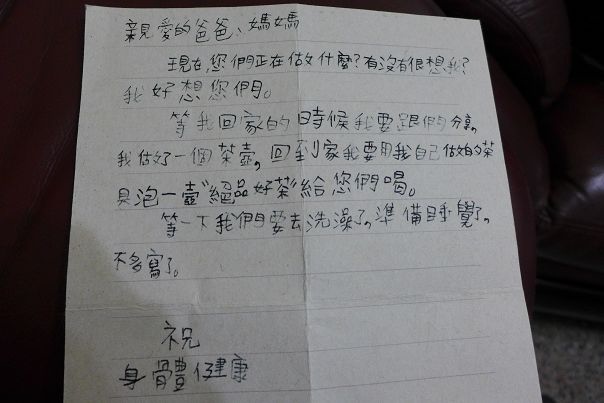 親愛的爸爸、媽媽
現在,您們正在做什麼?有沒有很想我?
我好想您們。
等我回家的時候我要跟們分享。
我做好一個茶壺,回到家我要用我自己做的茶
具泡一壺"絕品好茶"給您們喝。
等一下我們要去洗澡了。準備睡覺了。
不多寫了。
祝
身體健康